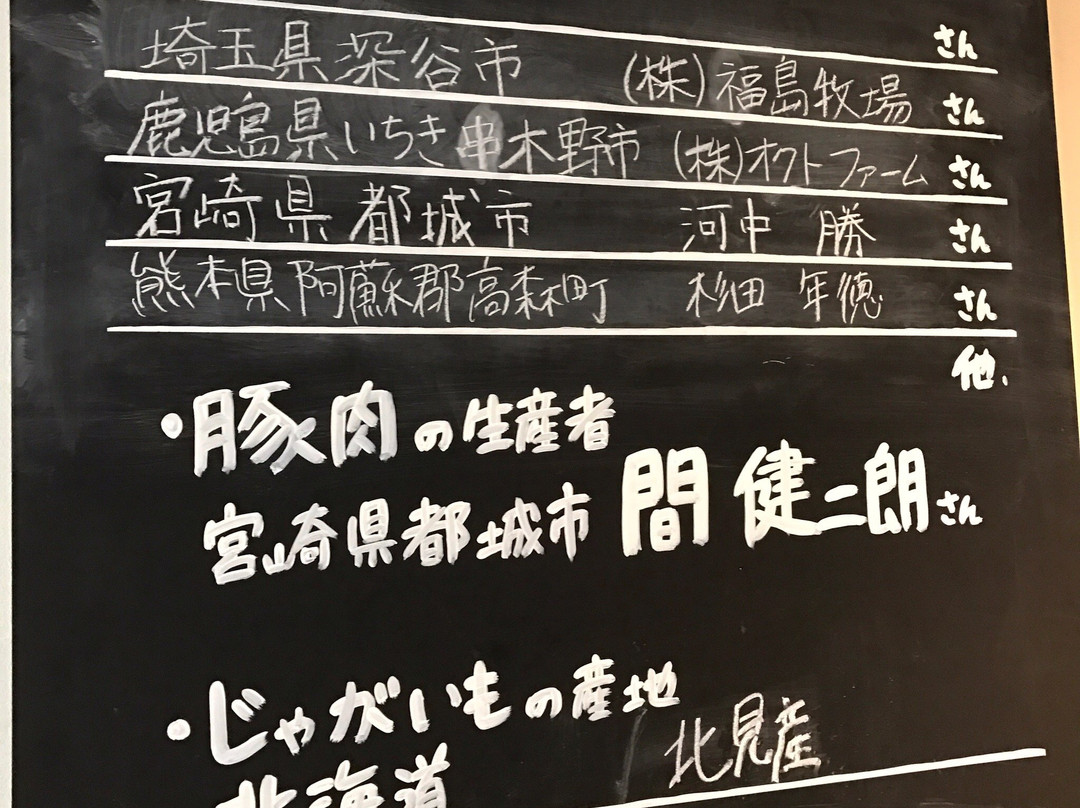 さん
埼玉県深谷市 (株)福島牧場 さん
鹿児島県いちき串木野市 (株)オクトファーム さん
宮崎県都城市 河中 勝 さん
熊本県阿蘇郡高森町 杉田 年徳 さん
他.
・豚肉の生産者
宮崎県都城市 間 健二朗さん
・じゃがいもの産地
北海道 北見産